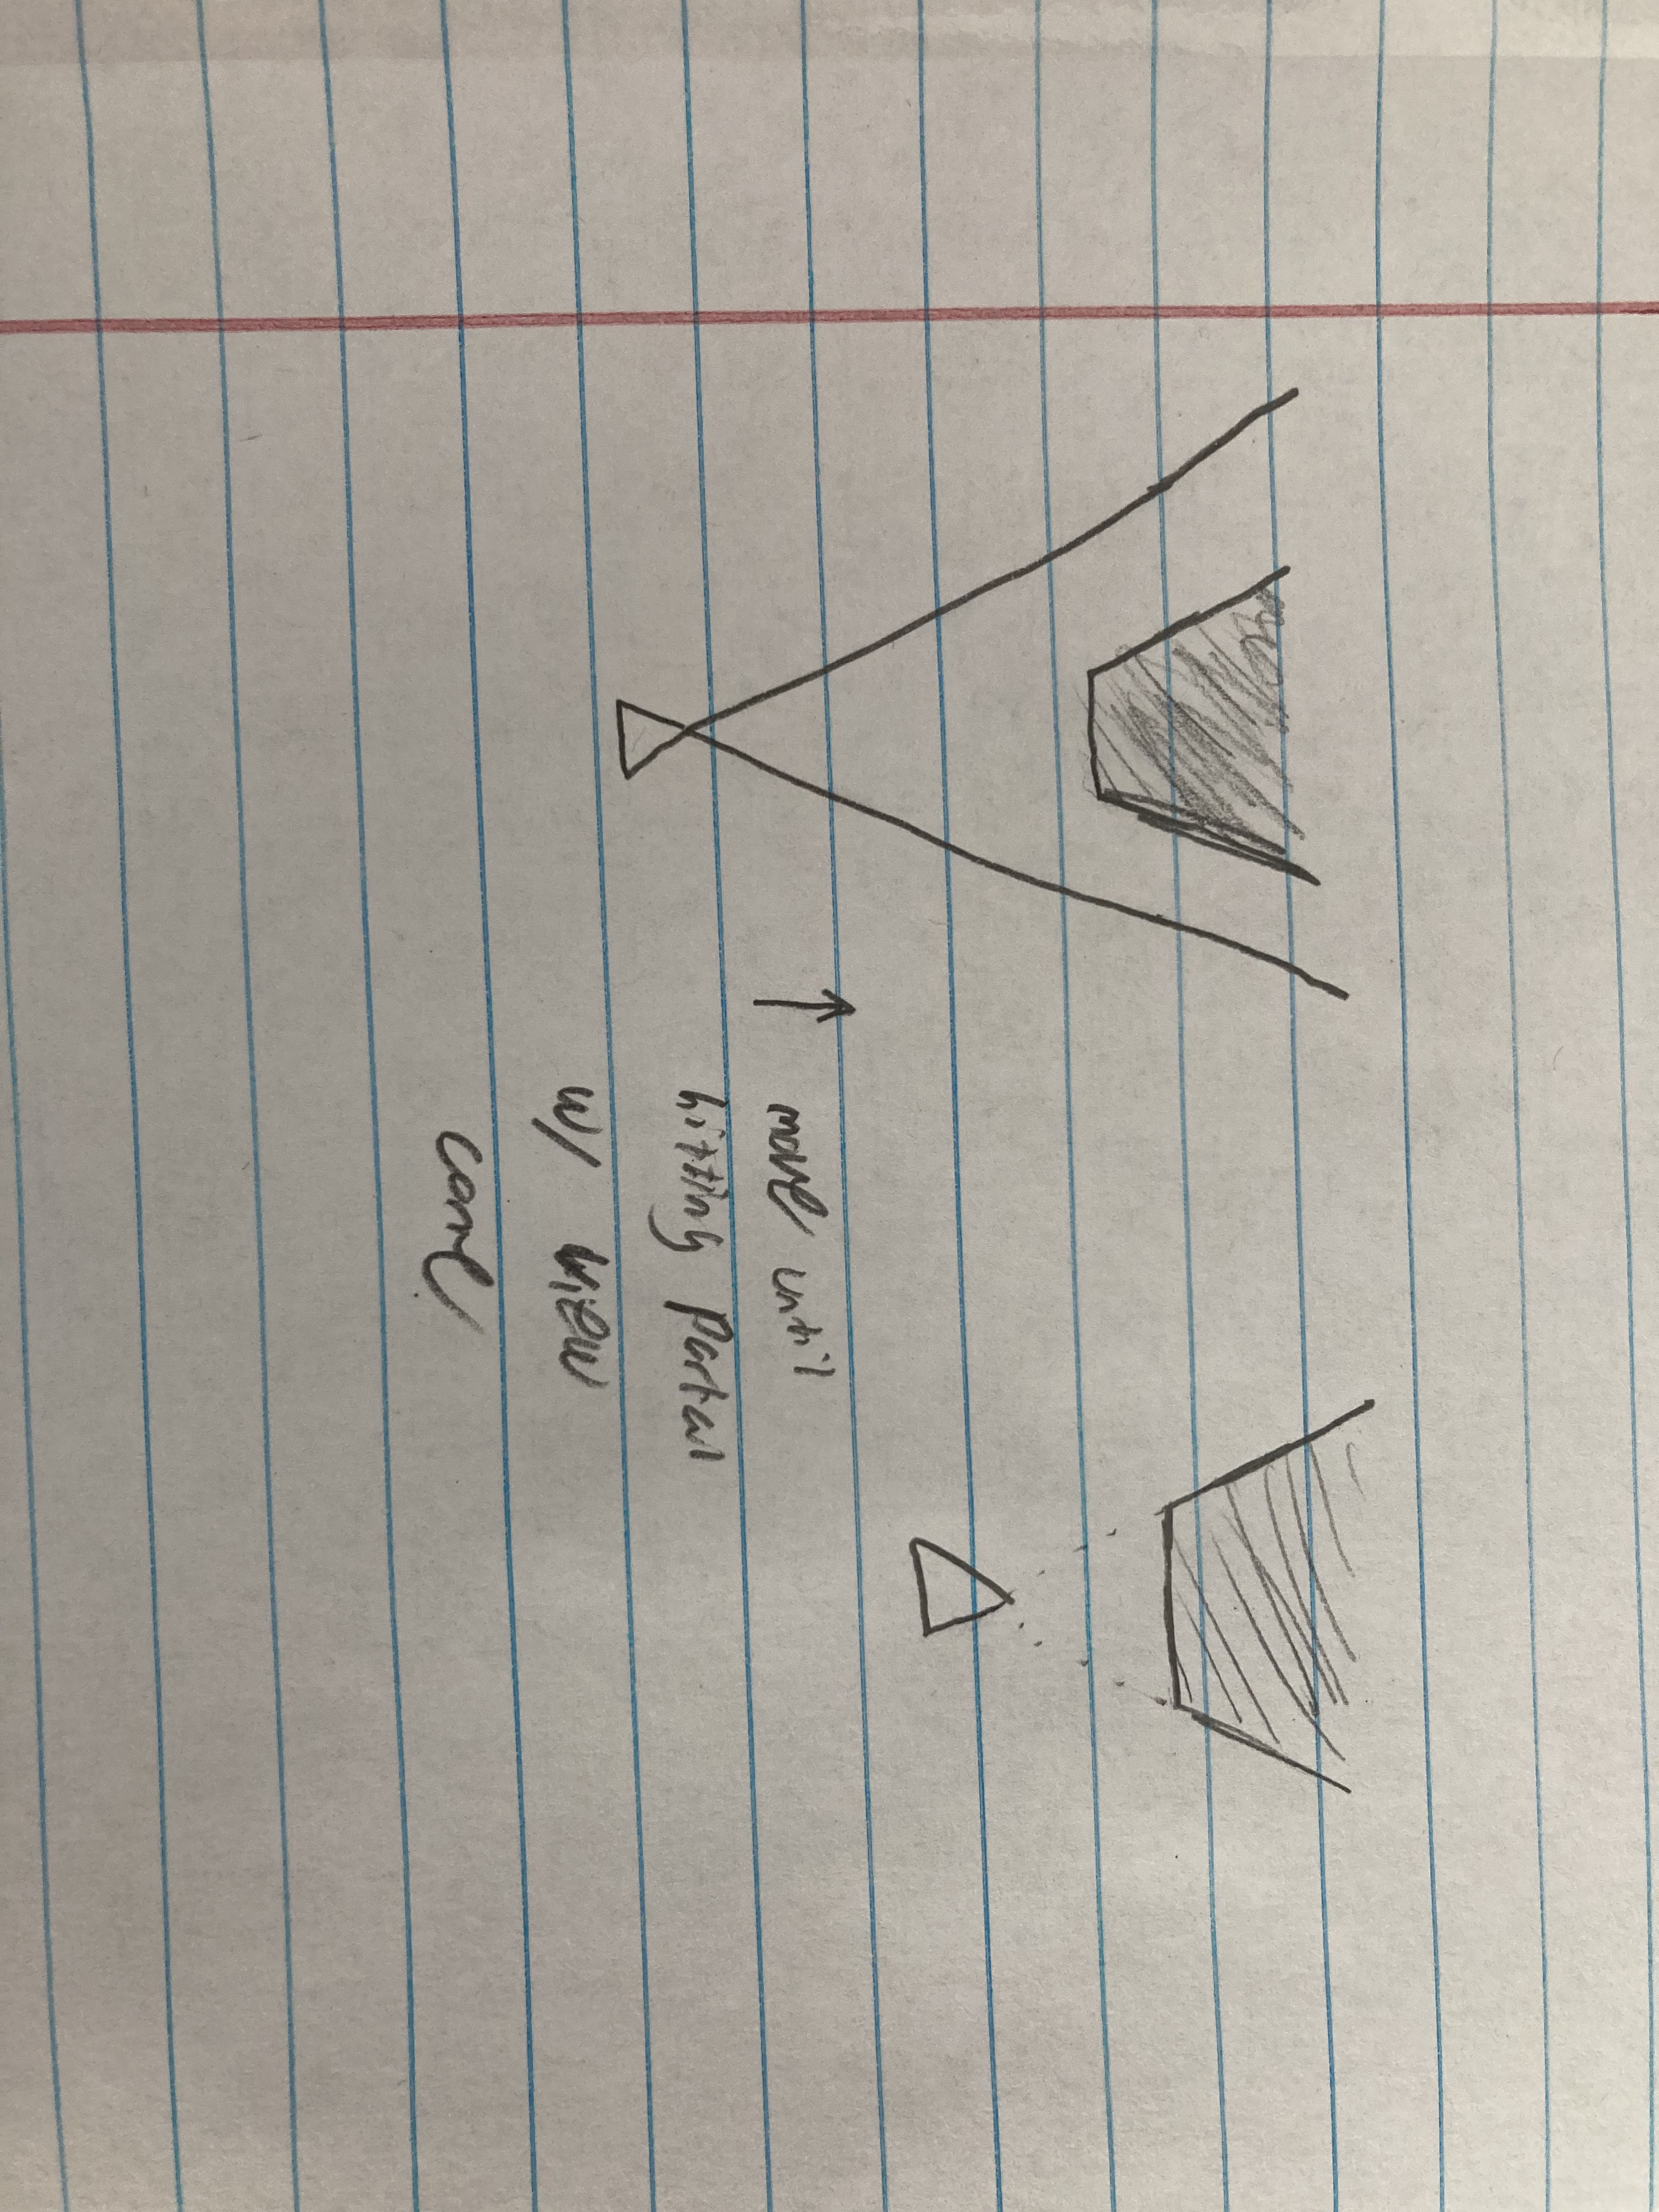 move until
hitting portal
w/ view
cone